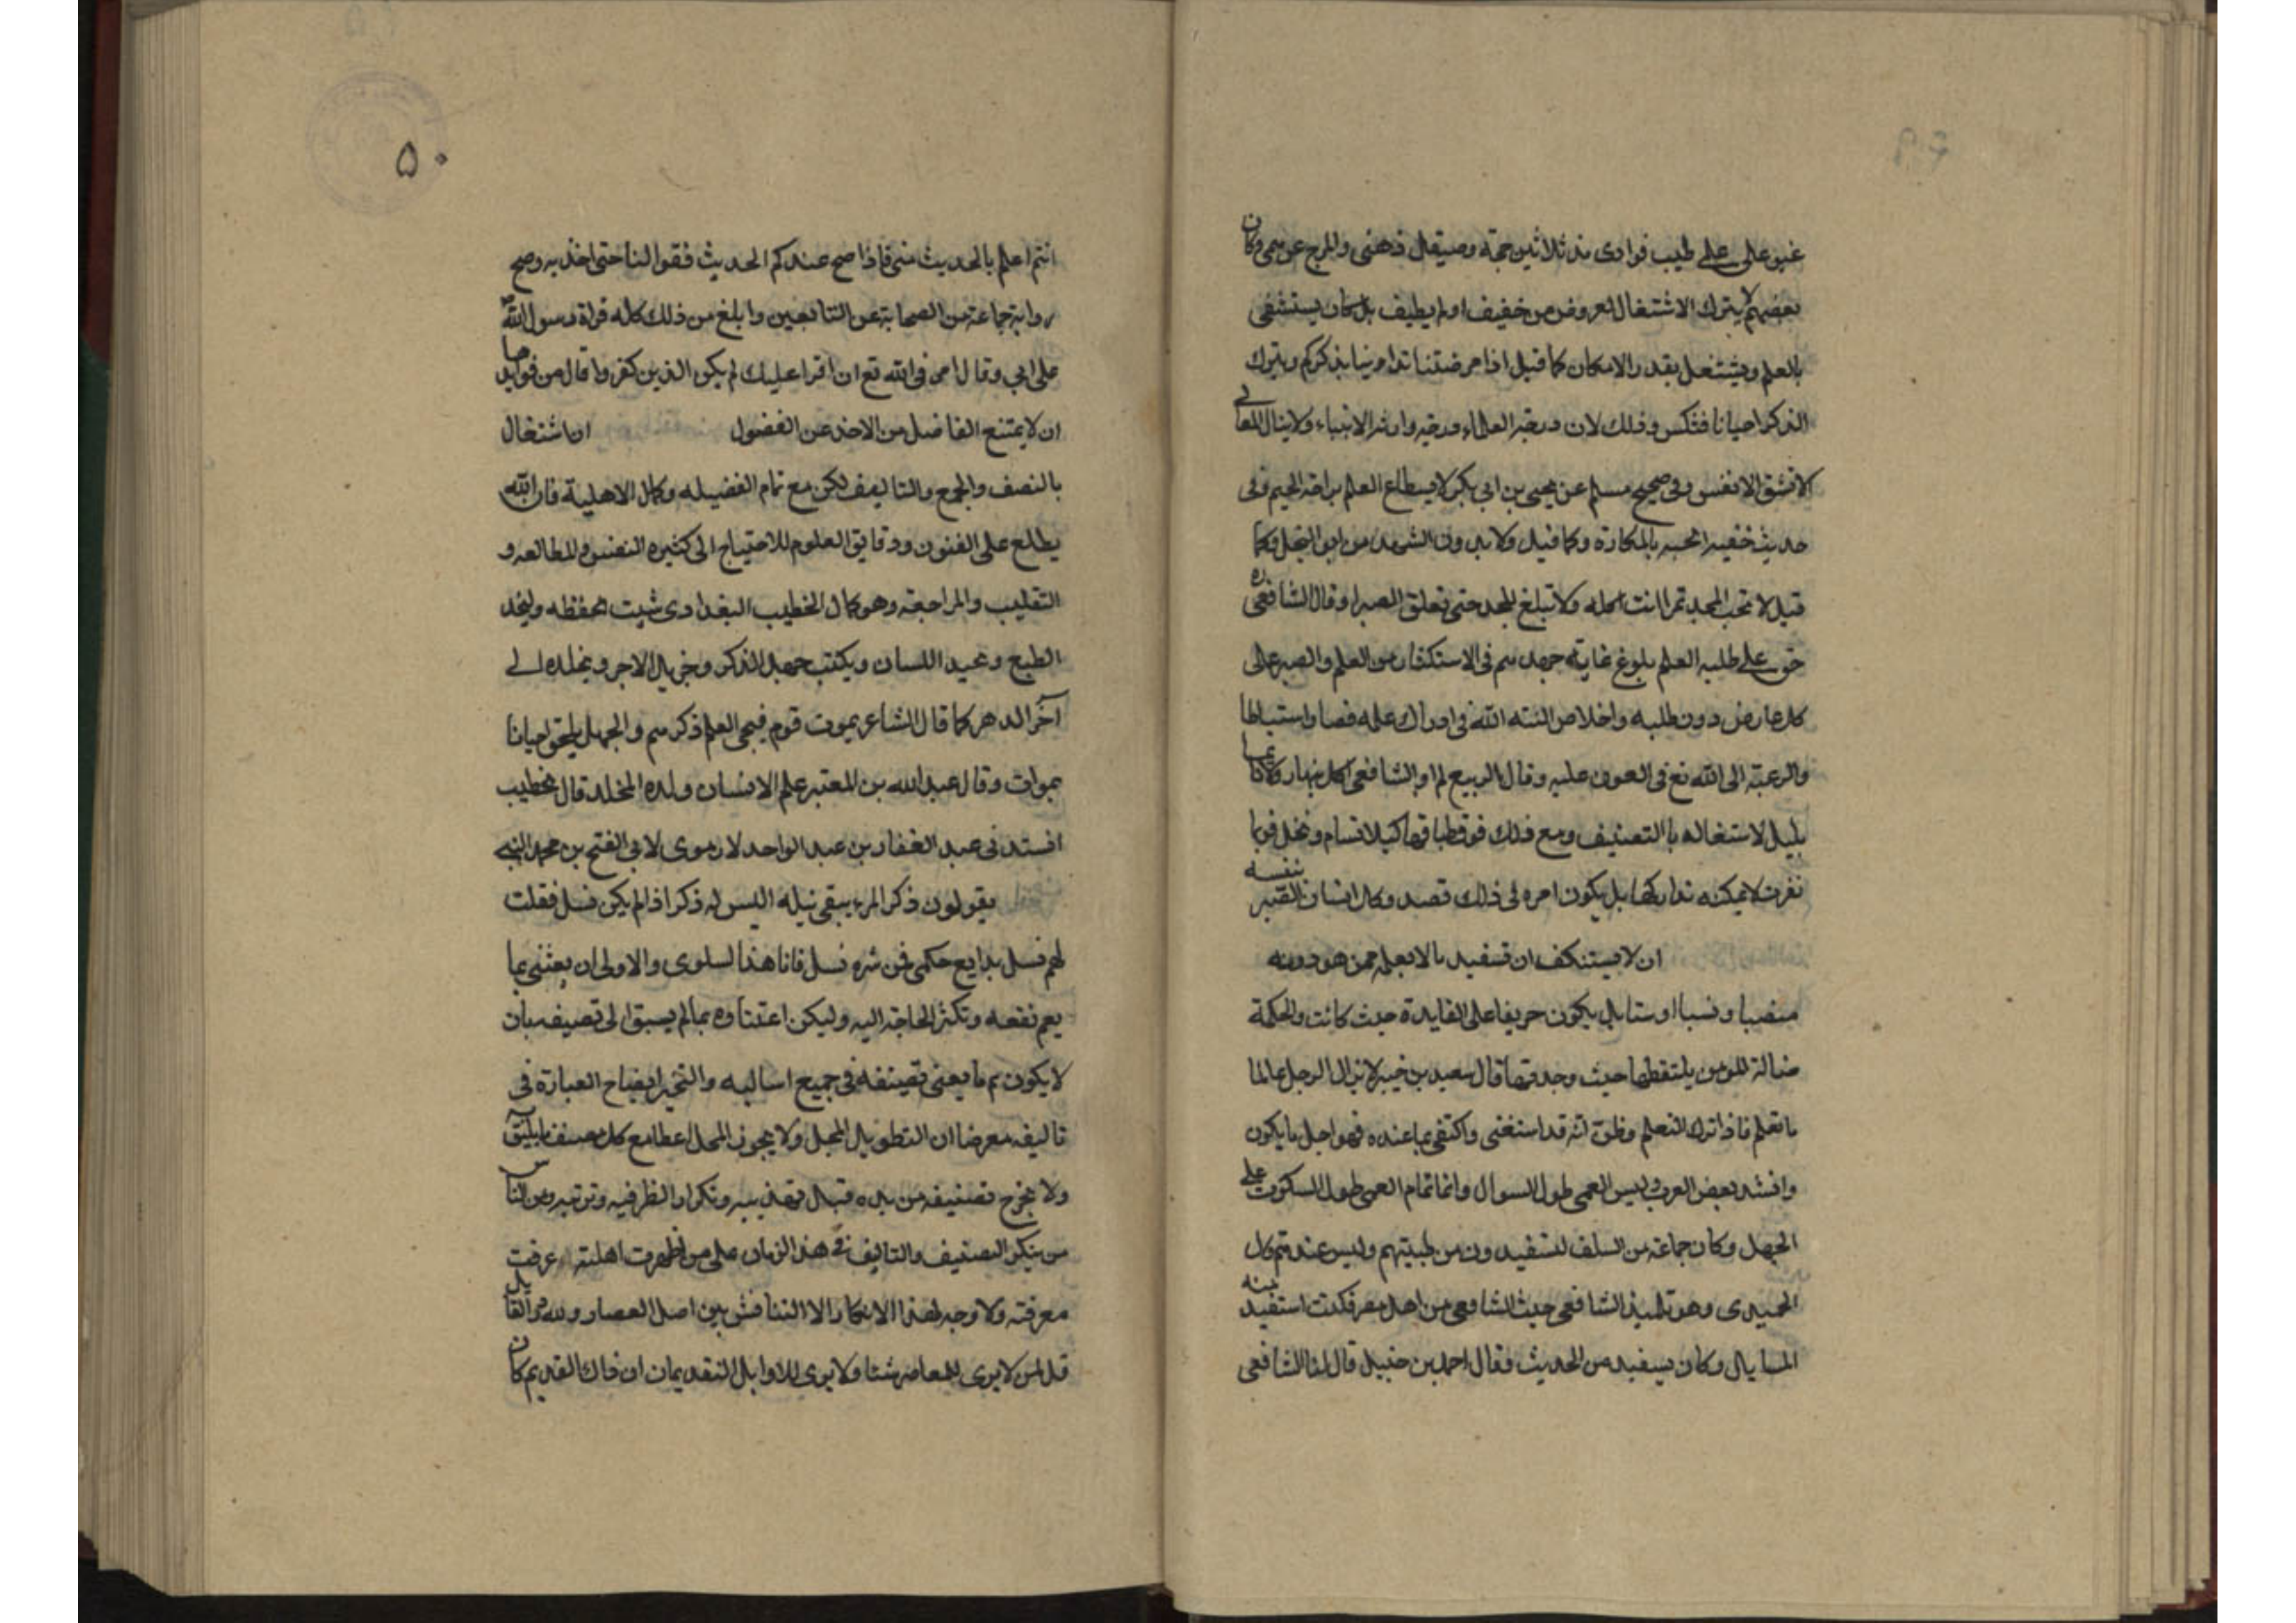 غيو على على طيب فوادى منذ ثلاثين حجة وصيقل ذهنى والمرج عن همى وكان
بعضهم لا يترك الاشتغال لعروض من خفيف او لم يطيف بل كان يستشفى
بالعلم ويشتغل بقدر الامكان كما قيل اذا مرضتنا تداوينا بذكركم ويترك
الذكر احيانا فنكس وذلك لان درجة العلماء درجة وارث الانبياء ولا ينال المعالى
الا بشق الانفس وفى صحيح مسلم عن يحيى بن ابى بكر لا يستطاع العلم براحة الجسم وفى
حديث خفيه الجنه بالمكاره وكما قيل ولا بد دون الشهد من ابر النحل وكما
قيل لا تحب المجد تمرا انت اكله ولا تبلغ المجد حتى تعلق الصبرا وقال الشافعى ره
حق على طلبه العلم بلوغ غاية جهدهم فى الاستكثار من العلم والصبر على
كل عارض دون طلبه واخلاص النيته الله فى ادراك علمه فصا واستباطا
والرعبته الى الله تع فى العون عليه وقال الربيع لم ار الشافعى اكل بنهار ولا نائما
بليل لاستغاله بالتصنيف ومع ذلك فوق طباقها كيلا تسام وتخل فربما
نفرت لا يمكنه تداركها بل يكون امره فى ذلك قصد وكال انسان بنفسه القبر
ان لا يستنكف ان تسفيد ما لا يعلمه ممن هو دونه
منصبا ونسبا او سنا بل يكون حريفا على الفايدة حيث كانت والحكمة
ضالة المومن يلتقطها حيث وجدتها قال سعيد بن خيبر لا يزال الرجل عالما
ما تعلم فاذا ترك التعلم وظن انه قد استغنى واكتفى بما عنده فهو اجل ما يكون
وانشد بعض العرب وليس العمى طول السوال وانما تمام العمى طول السكوت على
الجهل وكان جماعة من السلف لتسفيدون من طبيتهم وليس عندهم وكل
الحميدى وهو تلميذ الشافعى حيث الشافعى من اهل مصر فكنت استفيد منه
المسايل وكان يسفيد من الحديث فقال احمد بن حنبل قال لنا الشافعى
۵۰
انتم اعلم بالحديث منى فاذا صح عندكم الحديث فقوالنا حتى اخذ به وصح
رواية جماعة من الصحابة عن التابعين وابلغ من ذلك كله قراة رسول الله ص
على ابي وقال امرنى الله تع ان اقرا عليك لم يكن الذين كفروا قال من فوايد ما
ان لا يمتنع الفاضل من الاخذ عن الفضول ان اشتغال
بالنصف والجمع والتاليف لكن مع تمام الفضيله وكمال الاهلية فان الله
يطلع على الفنون ودقايق العلوم للاحتياج الى كثيره التفس والمطالعه و
التقليب والمراجعة وهو كما ل الخطيب البغدادى شيت الحفظه وليخد
الطبع وعيد اللسان ويكتب جهد الذكر وخريال الاجر ويخلده الى
آخر الدهر كما قال الشاعر يموت قوم فيحى العلم ذكرهم والجهل يلحق احيانا
بموات وقال عبد الله بن المعتبر علم الانسان ولده المخلد قال الخطيب
انستدنى عبد الغفار بن عبد الواحد لارموى لابى الفتح بن محمد البنى
يقولون ذكر المرء يبقى نيله اليس له ذكر اذا لم يكن نسل فقلت
لهم نسل بدايع حكمى فمن شره نسل فانا هذا لسلوى والاولى ان يعتنى بما
يعم نفعه وتكثر الحاجة اليه وليكن اعتناوه بما لم يسبق الى تصيفه بان
لا يكون ثم ما يعنى تصينفه فى جميع اساليبه والتخير ايضاح العبارة فى
تاليفه معرضا ان التطويل المحل ولا يجوز المحل اعطا مع كل مصنف ما يليق
ولا يخرج تصنيفه من يده قبل تهذيبه وتكرار النظر فيه وترتيبه ومن الناس
من ينكر التصنيف والتاليف فى هذا الزمان على من ظهرت اهلته عرفت
معرفته ولا وجه لهذا الانكار الا التنافش بين اصل العصار ولله در القايل
قل لمن لا يرى المعاصر شتا ولا يرى للاوايل التقديمان ان ذاك القديم كان